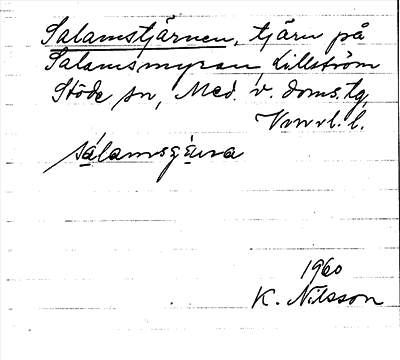 Salamstjärnen, tjärn på
Salamsmyran Lillström
Stöde sn, Med. v. doms. tg,
Vnrl. l.
1960
K. Nilsson